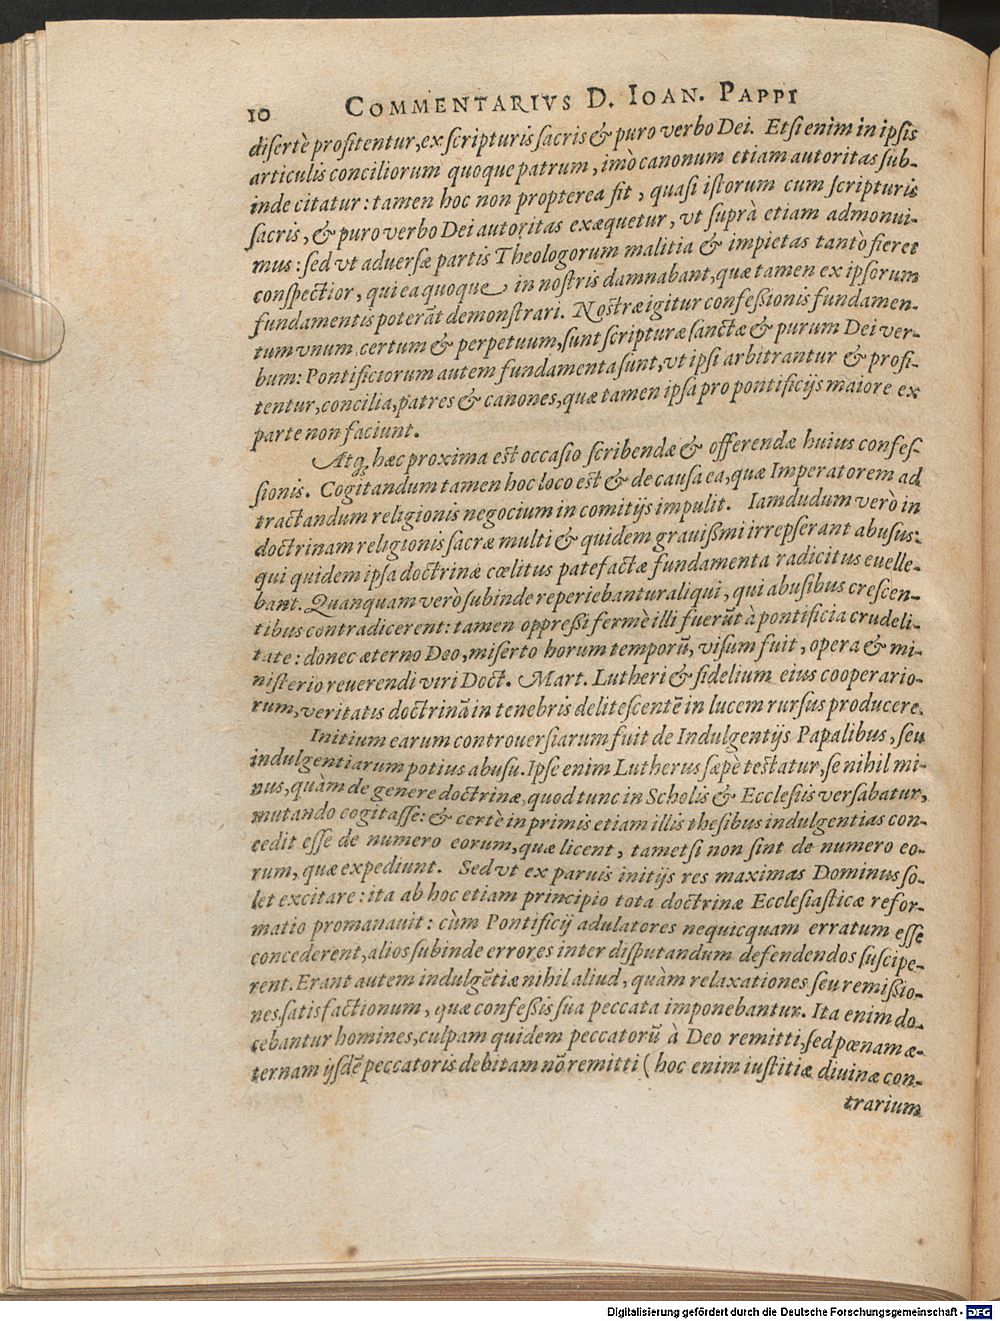 10 COMMENTARIVS D. IOAN. PAPPI
disertè profitentur, ex scripturis sacris & puro verbo Dei. Etsi enim in ipsis
articulis conciliorum quoque patrum, imò canonum etiam autoritas sub-
inde citatur: tamen hoc non propterea fit, quasi istorum cum scripturis
sacris, & puro verbo Dei autoritas exæquetur, vt suprà etiam admonui-
mus: sed vt aduersæ partis Theologorum malitia & impietas tantò fieret
conspectior, qui ea quoque in nostris damnabant, quæ tamen ex ipsorum
fundamentis poterāt demonstrari. Nostræ igitur confessionis fundamen-
tum vnum certum & perpetuum, sunt scripturæ sanctæ & purum Dei ver-
bum: Pontificiorum autem fundamenta sunt, vt ipsi arbitrantur & profi-
tentur, concilia, patres & canones, quæ tamen ipsa pro pontificijs maiore ex
parte non faciunt.
Atq; hæc proxima est occasio scribendæ & offerendæ huius confes-
sionis. Cogitandum tamen hoc loco est & de causa ea, quæ Imperatorem ad
tractandum religionis negocium in comitijs impulit. Iamdudum verò in
doctrinam religionis sacræ multi & quidem grauißmi irrepserant abusus:
qui quidem ipsa doctrinæ cœlitus patefactæ fundamenta radicitus euelle-
bant. Quanquam verò subinde reperiebantur aliqui, qui abusibus crescen-
tibus contradicerent: tamen oppressi fermè illi fuerūt à pontificia crudeli-
tate: donec æterno Deo, miserto horum temporū, visum fuit, opera & mi-
nisterio reuerendi viri Doct. Mart. Lutheri & fidelium eius cooperario-
rum, veritatis doctrinā in tenebris delitescentē in lucem rursus producere.
Initium earum controuersiarum fuit de Indulgentijs Papalibus, seu
indulgentiarum potius abusu. Ipse enim Lutherus sæpè testatur, se nihil mi-
nus, quàm de genere doctrinæ, quod tunc in Scholis & Ecclesiis versabatur,
mutando cogitasse: & certè inprimis etiam illis thesibus indulgentias con-
cedit esse de numero eorum, quæ licent, tametsi non sint de numero eo-
rum, quæ expediunt. Sed vt ex paruis initijs res maximas Dominus so-
let excitare: ita ab hoc etiam principio tota doctrinæ Ecclesiasticæ refor-
matio promanauit: cùm Pontificij adulatores nequicquam erratum esse
concederent, alios subinde errores inter disputandum defendendos suscipe-
rent. Erant autem indulgētiæ nihil aliud, quàm relaxationes seu remißio-
nes satisfactionum, quæ confeßis sua peccata imponebantur. Ita enim do-
cebantur homines, culpam quidem peccatorū à Deo remitti, sed pœnam æ-
ternam ijsdē peccatoris debitam nō remitti (hoc enim iustitiæ diuinæ con-
trarium
Digitalisierung gefördert durch die Deutsche Forschungsgemeinschaft - DFG